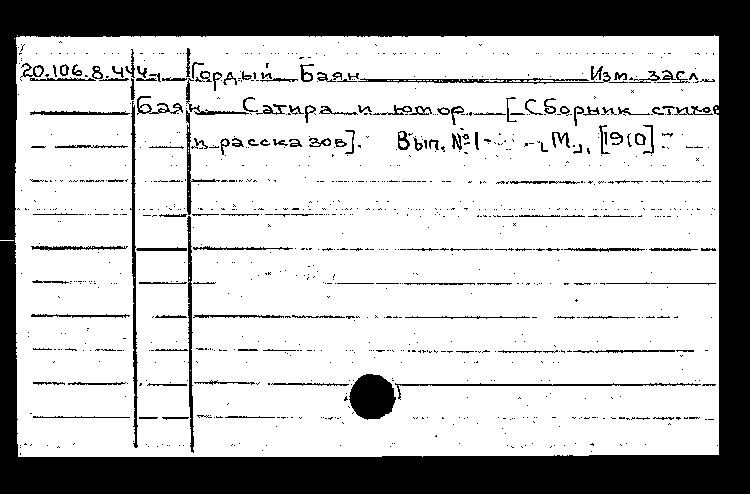 20.106.8.444-1 Гордый Баян Изм. засл.
Баян. Сатира и юмор. [Сборник стихов
и рассказов]. Вып. №1- -М., [1910]-